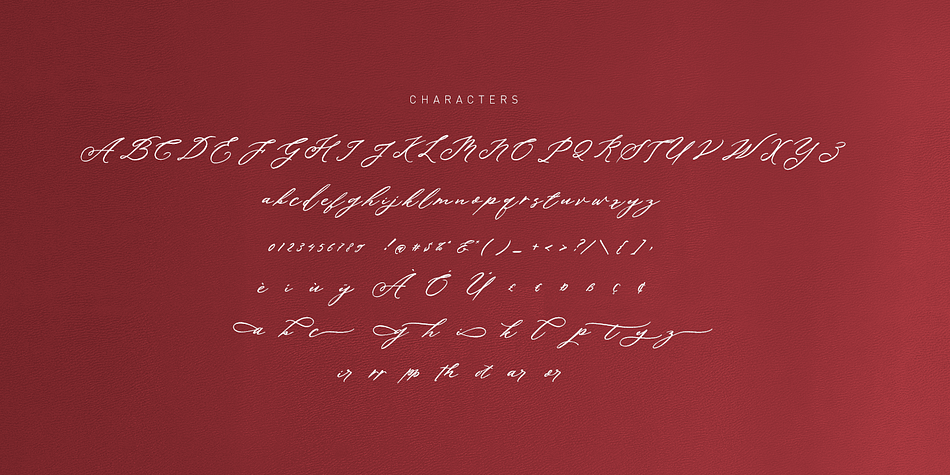 CHARACTERS
A B C D E F G H I J K L M N O P Q R S T U V W X Y Z
a b c d e f g h i j k l m n o p q r s t u v w x y z
0 1 2 3 4 5 6 7 8 9 ! @ # $ % & * ( ) _ + < > ? / \ [ ] ,
è i ù ÿ
a b c g h i k l p t y z
ir rr pp th st ar or